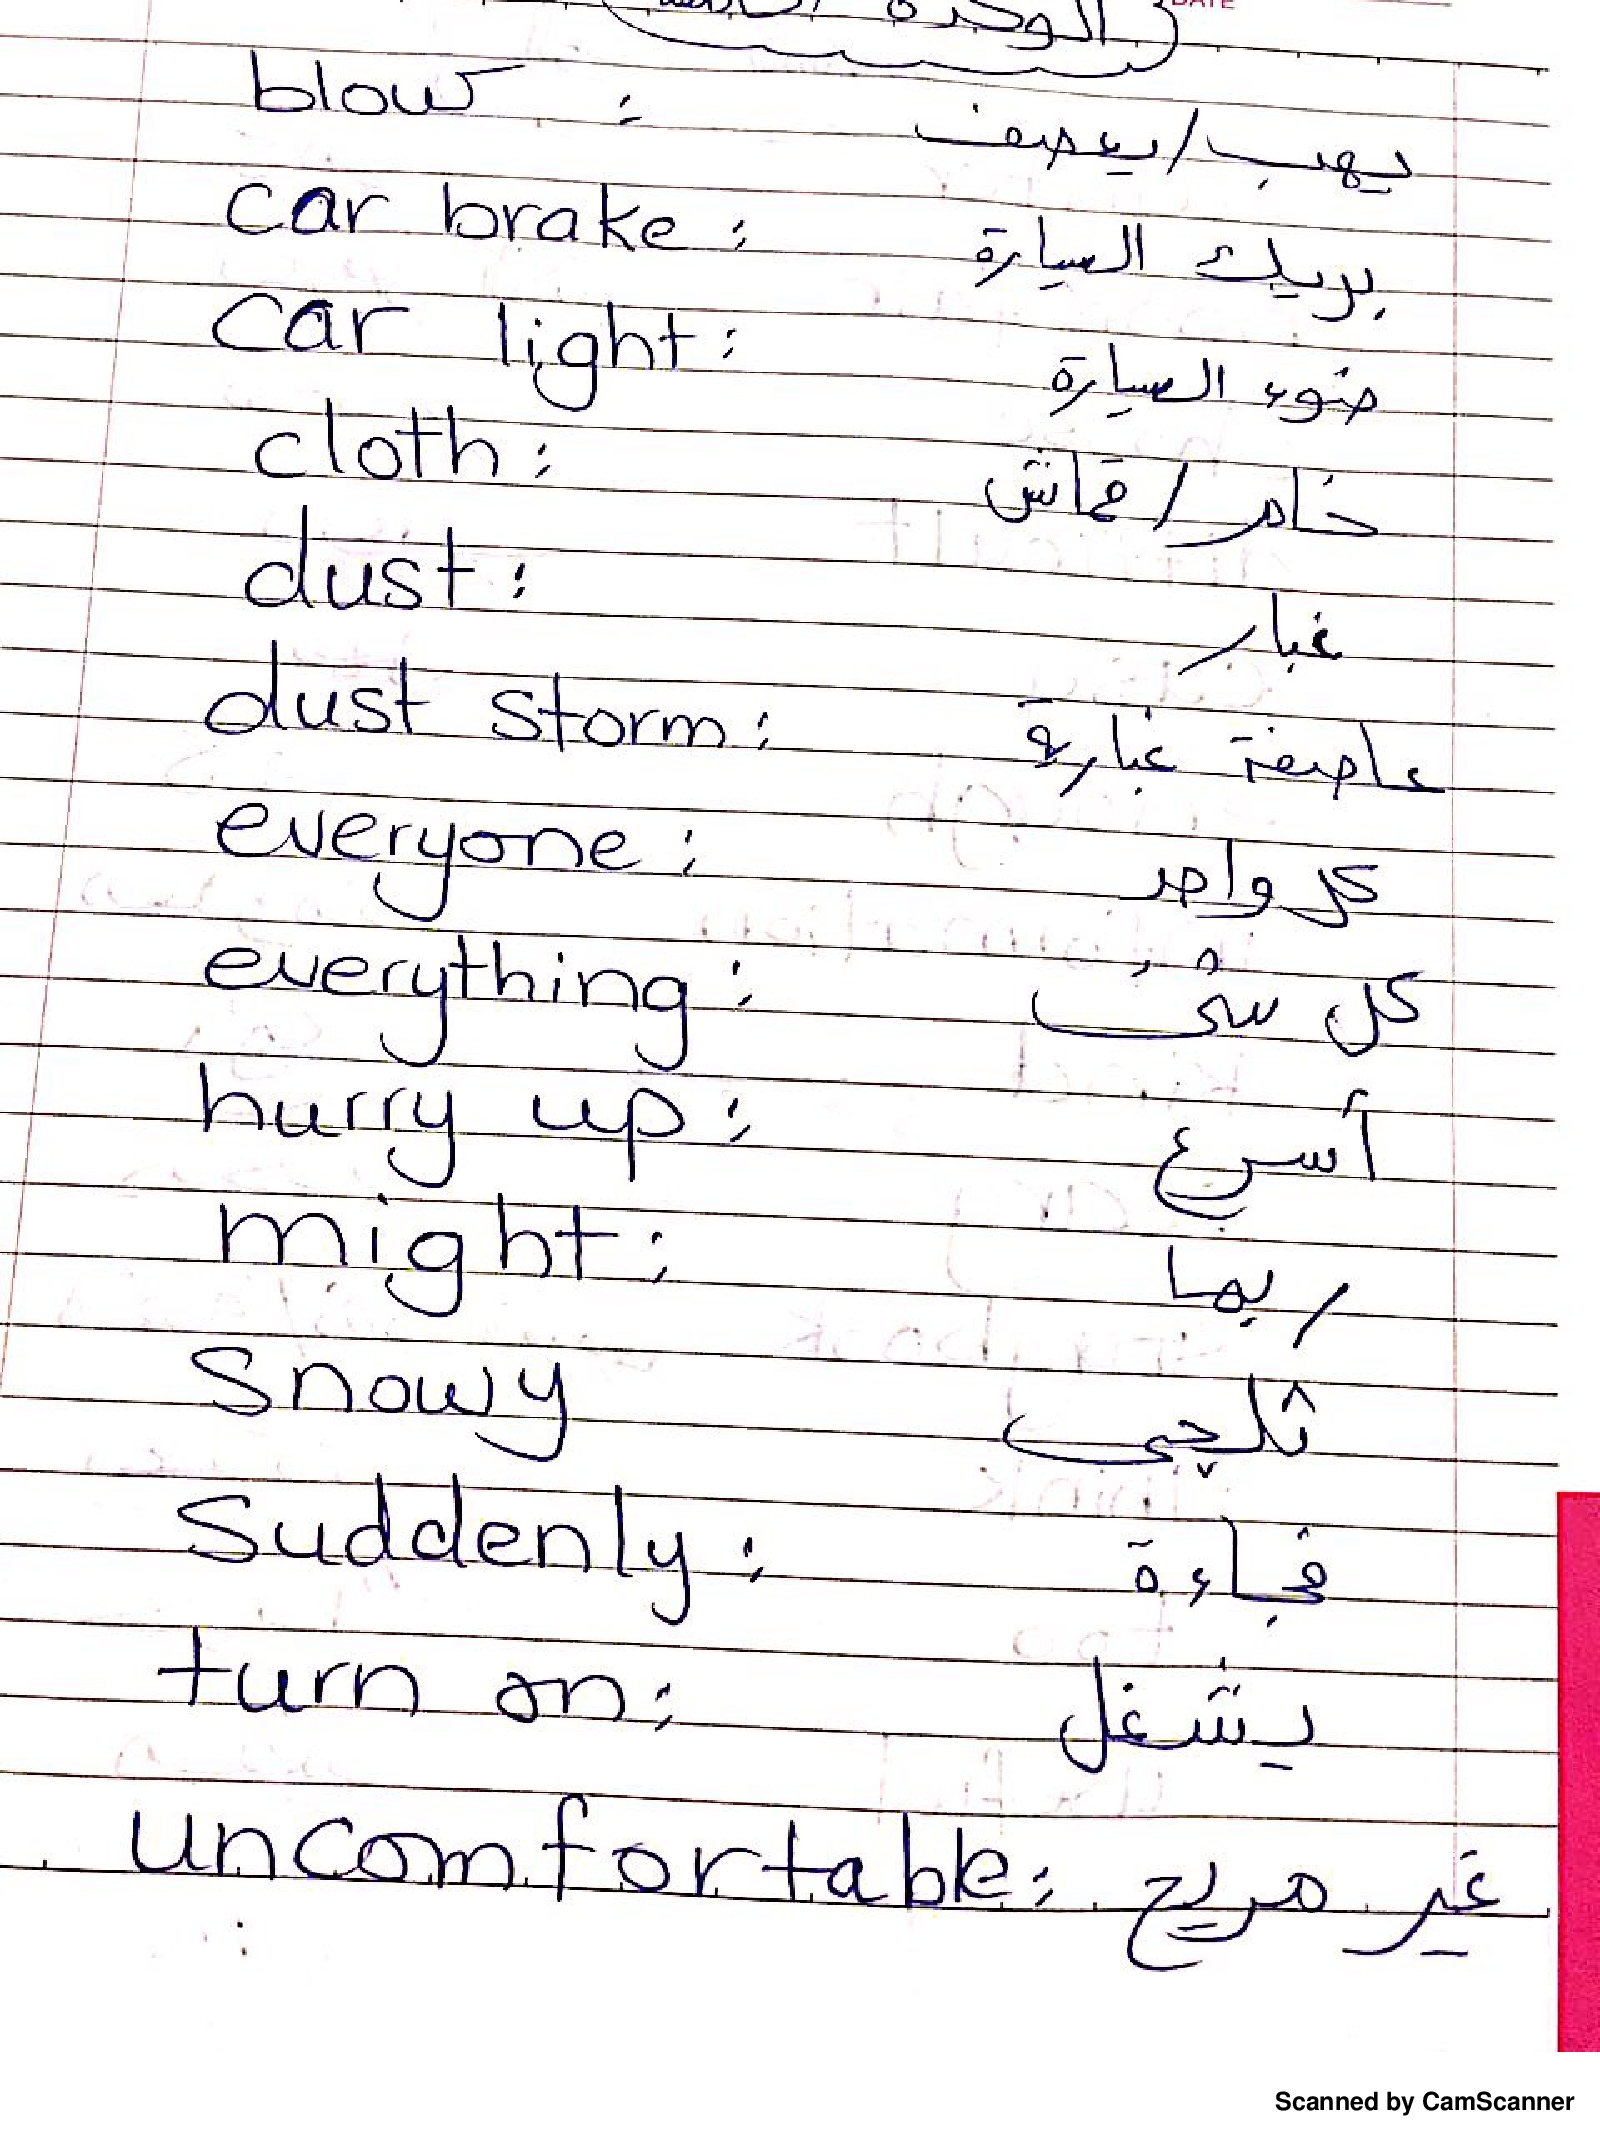 الوحدة
DATE
blow : يهب/يعصف
car brake : بريك السيارة
car light : ضوء السيارة
cloth : خام/قماش
dust : غبار
dust storm : عاصفة غبارية
everyone : كل واحد
everything : كل شيء
hurry up : أسرع
might : ربما
snowy ثلجي
Suddenly : فجاءة
turn on : يشغل
uncomfortable : غير مريح
Scanned by CamScanner